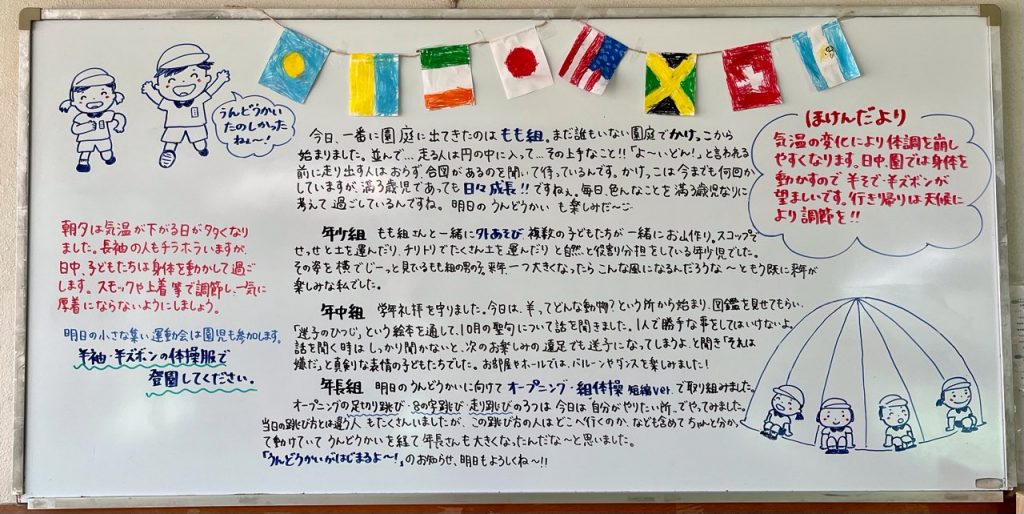 うんどうかい
たのしかった
ねぇ〜！
今日、一番に園庭に出てきたのは もも組。まだ誰もいない園庭で かけっこから
始まりました。並んで…走る人は円の中に入って…その上手なこと!!「よ〜いどん！」と言われる
前に走り出す人は おらず、合図があるのを聞いて待っているんです。かけっこは今までも何回か
していますが、満3歳児であっても 日々成長!! ですねぇ。毎日、色んなことを 満3歳児なりに
考えて 過ごしているんですね。明日の うんどうかい も楽しみだ〜
年少組 もも組さんと一緒に 外あそび。複数の子どもたちが一緒にお山作り。スコップで
せっせと土を運んだり、チリトリでたくさん土を運んだり と自然と役割分担をしている年少児でした。
その姿を横でじーっと見ているもも組の男の子。来年一つ大きくなったら こんな風になるんだろうな〜ともう既に来年が
楽しみな私でした。
年中組 学年礼拝を守りました。今日は、羊、ってどんな動物？という所から始まり、図鑑を見せてもらい、
「迷子のひつじ」という絵本を通して、10月の聖句について話を聞きました。1人で勝手な事をしてはいけないよ。
話を聞く時は しっかり聞かないと、次のお楽しみの 遠足でも 迷子になってしまうよ と聞き「それは
嫌だ」と真剣な表情の子どもたちでした。お部屋やホールでは、バルーンやダンスを楽しみました！
年長組 明日のうんどうかいに向けて オープニング・組体操 短縮ver. で取り組みました。
オープニングの 足切り跳び・8の字跳び・走り跳び の3つは 今日は 自分がやりたい所、でやってみました。
当日の跳び方とは違う人 もたくさんいましたが、この跳び方の人はどこへ行くのか、なども含めて ちゃんと分かっ
て動けていて うんどうかいを経て 年長さんも大きくなったんだな〜と思いました。
「うんどうかいがはじまるよ〜！」のお知らせ、明日もよろしくね〜!!
ほけんだより
気温の変化により体調を崩し
やすくなります。日中、園では身体を
動かすので 半そで・半ズボンが
望ましいです。行き帰りは天候に
より調節を!!
朝夕は気温が下がる日が多くなり
ました。長袖の人もチラホラいますが、
日中、子どもたちは身体を動かして過ご
します。スモックや上着等で調節し、一気に
厚着にならないようにしましょう。
明日の小さな集い運動会は園児も参加します。
半袖・半ズボンの体操服で
登園してください。